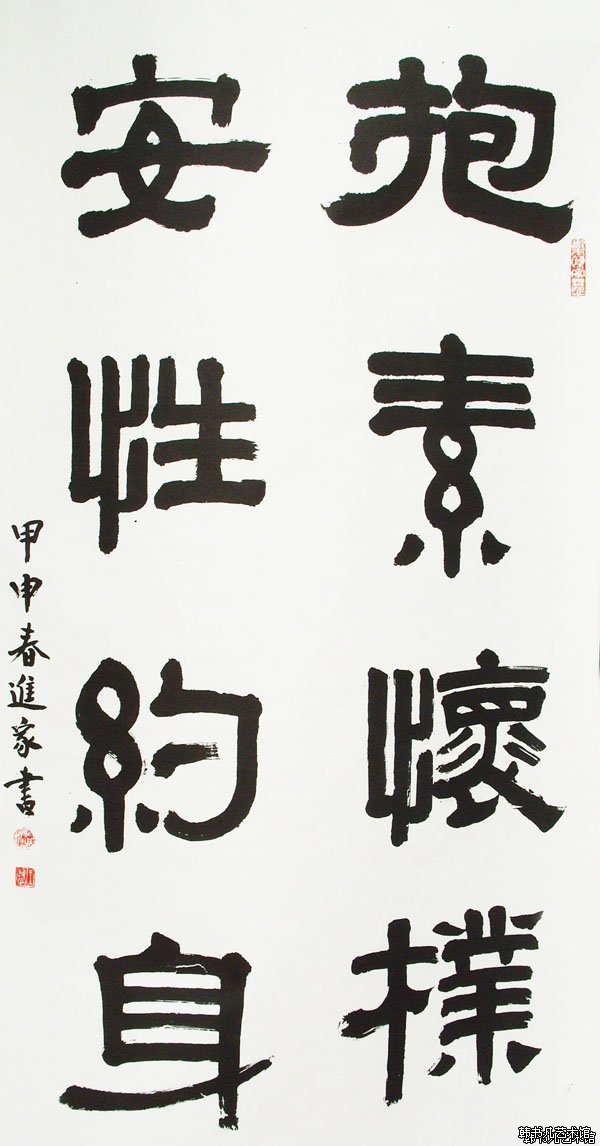 抱素懷樸
安性約身
甲申春進家書
韩书凡艺术馆